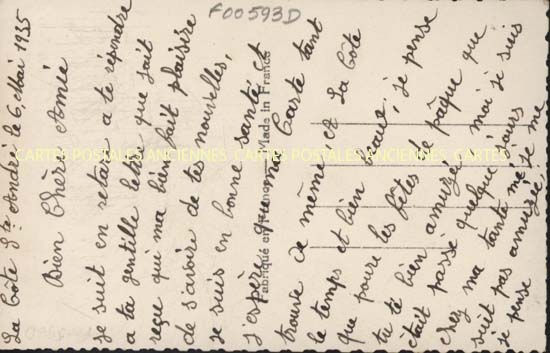 F00593D
La Côte St André le 6 Mai 1935
Bien Chère Amie
Je suit en retare a te répondre
a ta gentille letre que jait
reçue qui ma bien fait plaisire
de savoire de tes nouvelles,
je suis en bonne santé et
j'espère que ma Carte tant
trouve de même, A La Côte
le temps et bien mauvais, je pense
que poure les fêtes de pâque que
tu té bien amusée moi je suis
était passé quelque jours
chez ma tante né je me
suit pas amusée,
je pense
Fabriqué en France — Made in France
CARTES POSTALES ANCIENNES CARTES POSTALES ANCIENNES CARTES